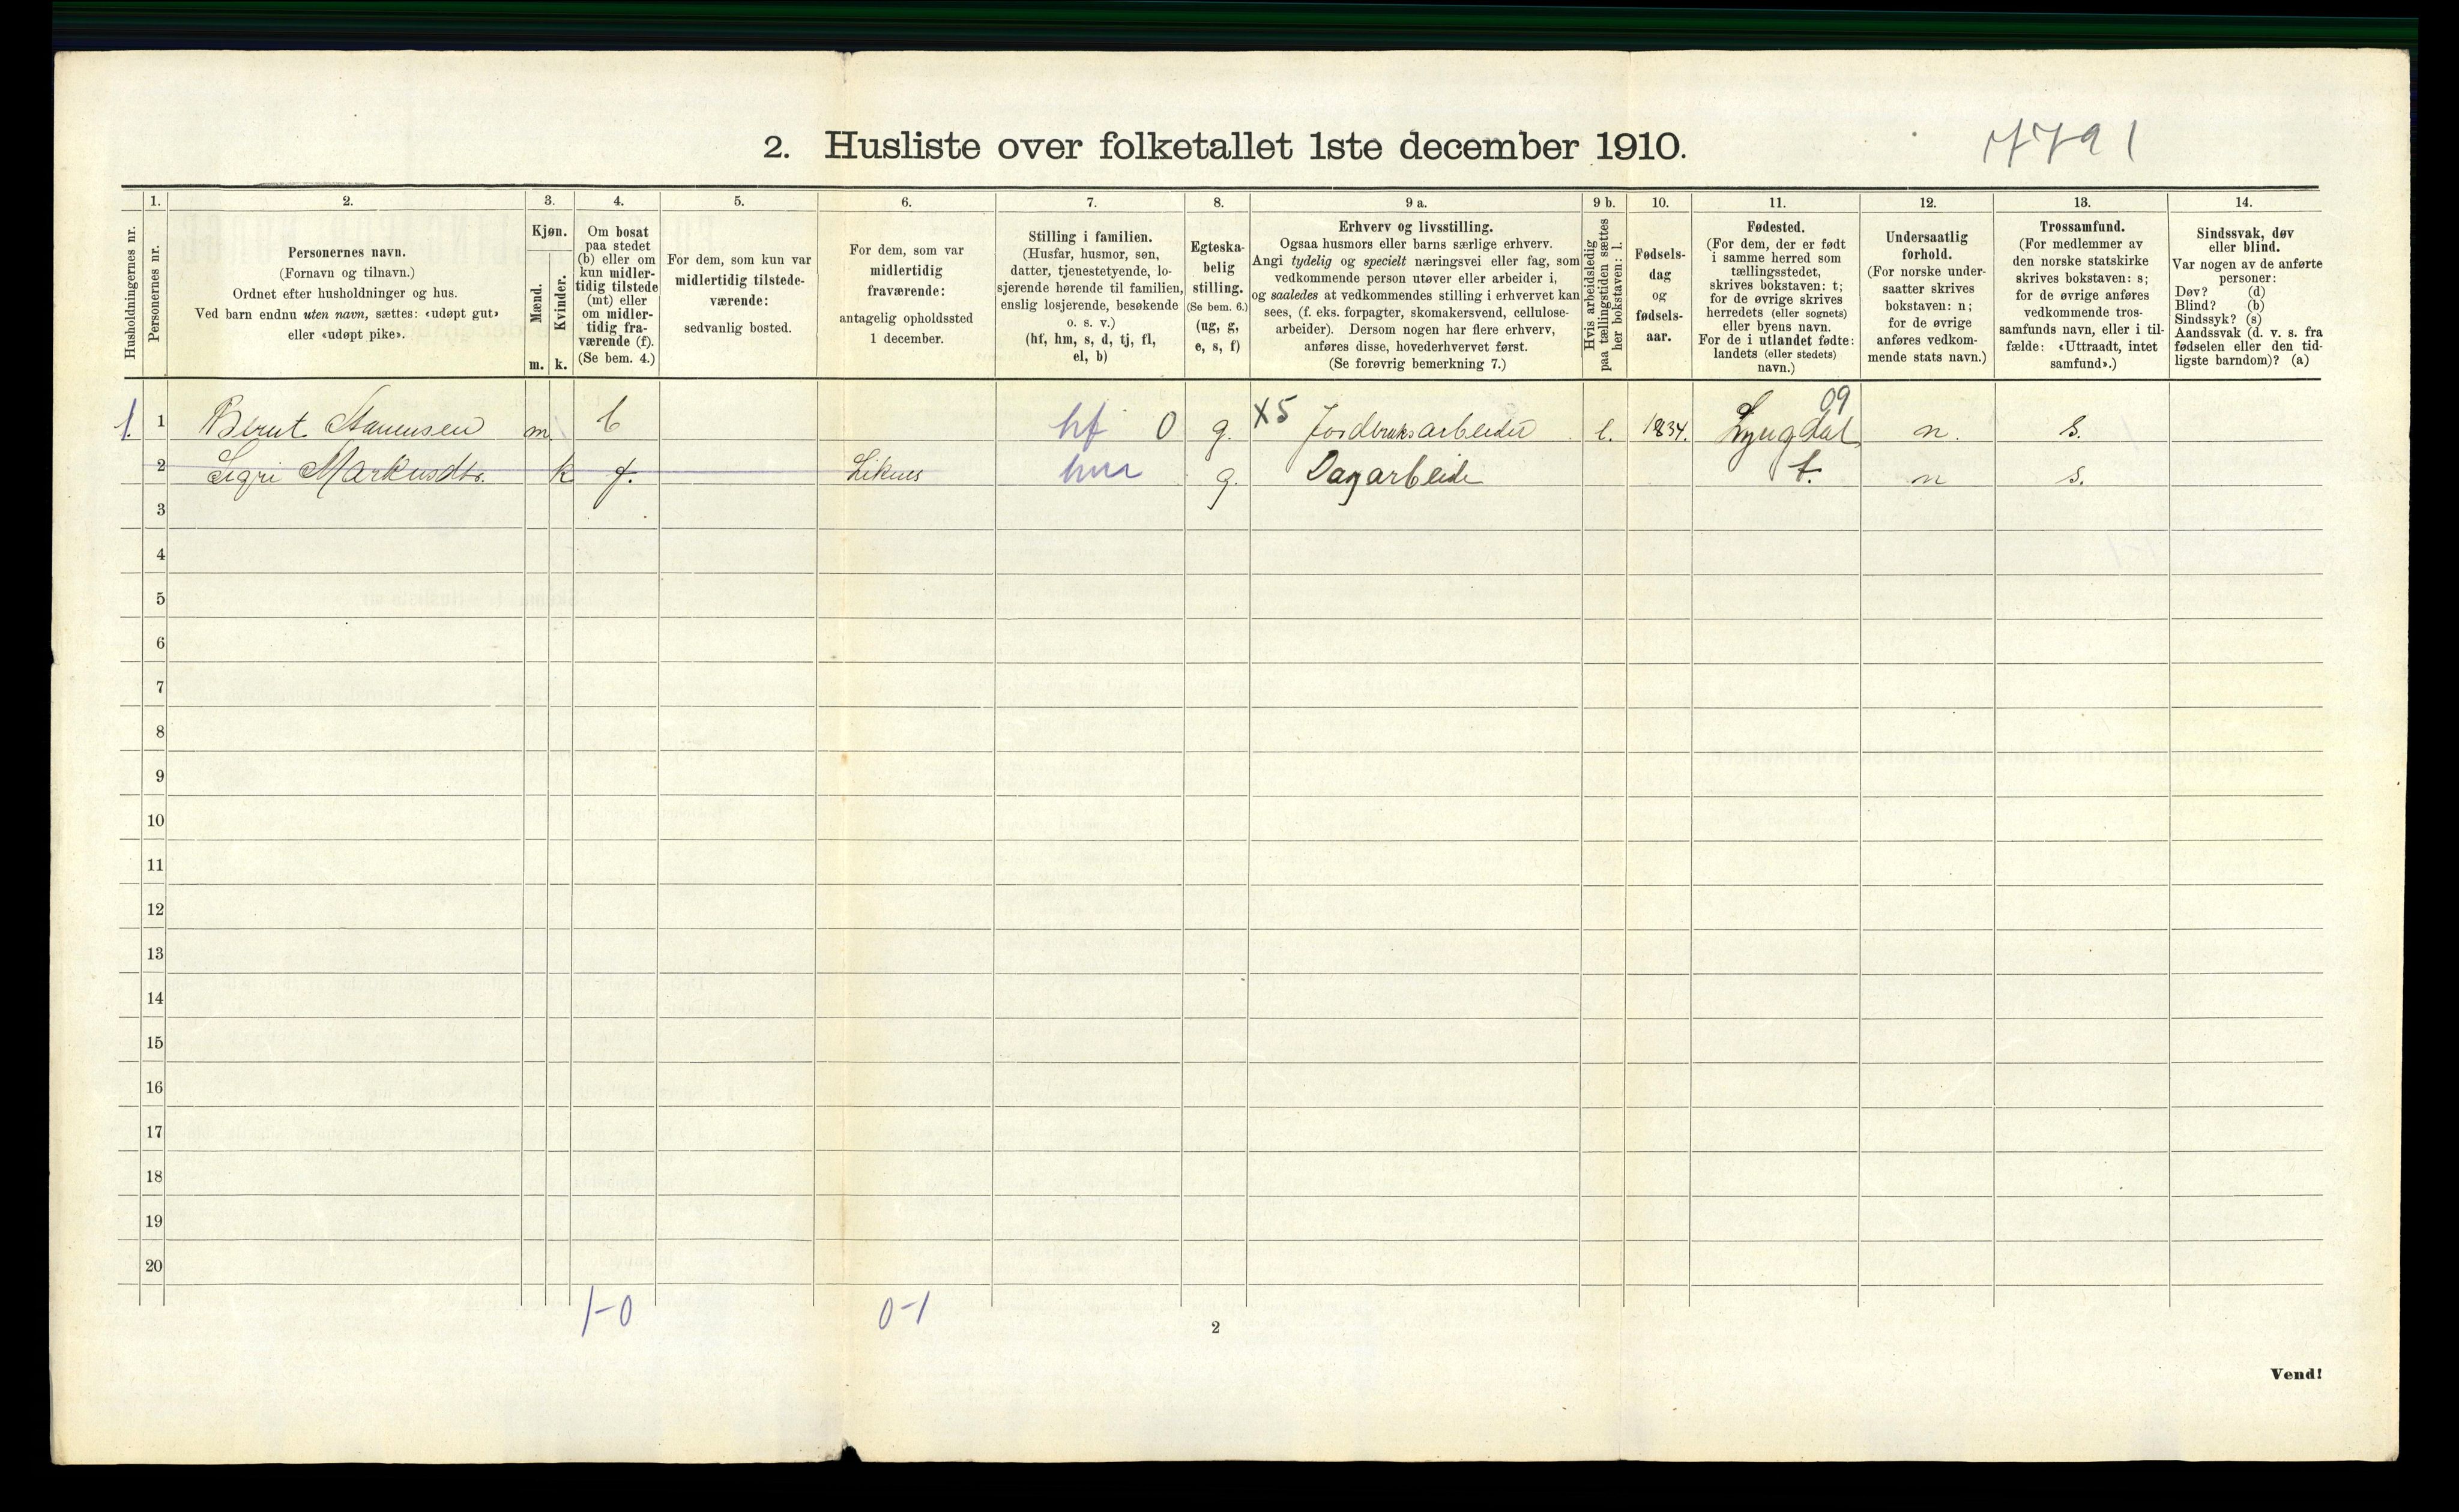 2. Husliste over folketallet 1ste december 1910.
7791
1. 2. 3. 4. 5. 6. 7. 8. 9 a. 9 b. 10. 11. 12. 13. 14.
Husholdningernes nr.
Personernes nr.
Personernes navn.
(Fornavn og tilnavn.)
Ordnet efter husholdninger og hus.
Ved barn endnu uten navn, sættes: «udøpt gut»
eller «udøpt pike».
Kjøn.
Mænd.
Kvinder.
m. k.
Om bosat
paa stedet
(b) eller om
kun midler-
tidig tilstede
(mt) eller
om midler-
tidig fra-
værende (f).
(Se bem. 4.)
For dem, som kun var
midlertidig tilstede-
værende:
sedvanlig bosted.
For dem, som var
midlertidig
fraværende:
antagelig opholdssted
1 december.
Stilling i familien.
(Husfar, husmor, søn,
datter, tjenestetyende, lo-
sjerende hørende til familien,
enslig losjerende, besøkende
o. s. v.)
(hf, hm, s, d, tj, fl,
el, b)
Egteska-
belig
stilling.
(Se bem. 6.)
(ug, g,
e, s, f)
Erhverv og livsstilling.
Ogsaa husmors eller barns særlige erhverv.
Angi tydelig og specielt næringsvei eller fag, som
vedkommende person utøver eller arbeider i,
og saaledes at vedkommendes stilling i erhvervet kan
sees, (f. eks. forpagter, skomakersvend, cellulose-
arbeider). Dersom nogen har flere erhverv,
anføres disse, hovederhvervet først.
(Se forøvrig bemerkning 7.)
Hvis arbeidsledig
paa tællingstiden sættes
her bokstaven: l.
Fødsels-
dag
og
fødsels-
aar.
Fødested.
(For dem, der er født
i samme herred som
tællingsstedet,
skrives bokstaven: t;
for de øvrige skrives
herredets (eller sognets)
eller byens navn.
For de i utlandet fødte:
landets (eller stedets)
navn.)
Undersaatlig
forhold.
(For norske under-
saatter skrives
bokstaven: n;
for de øvrige
anføres vedkom-
mende stats navn.)
Trossamfund.
(For medlemmer av
den norske statskirke
skrives bokstaven: s;
for de øvrige anføres
vedkommende tros-
samfunds navn, eller i til-
fælde: «Uttraadt, intet
samfund».)
Sindssvak, døv
eller blind.
Var nogen av de anførte
personer:
Døv? (d)
Blind? (b)
Sindssyk? (s)
Aandssvak (d. v. s. fra
fødselen eller den tid-
ligste barndom)? (a)
09
1. 1 Berut m b hf 0 g. X5 Jordbruksarbeider l. 1834. Lyngdal n. s.
2 Sigri Markusdtr. k f. Liknes hm g. Dagarbeide t. n s.
3
4
5
6
7
8
9
10
11
12
13
14
15
16
17
18
19
20
1-0 0-1
2
Vend!